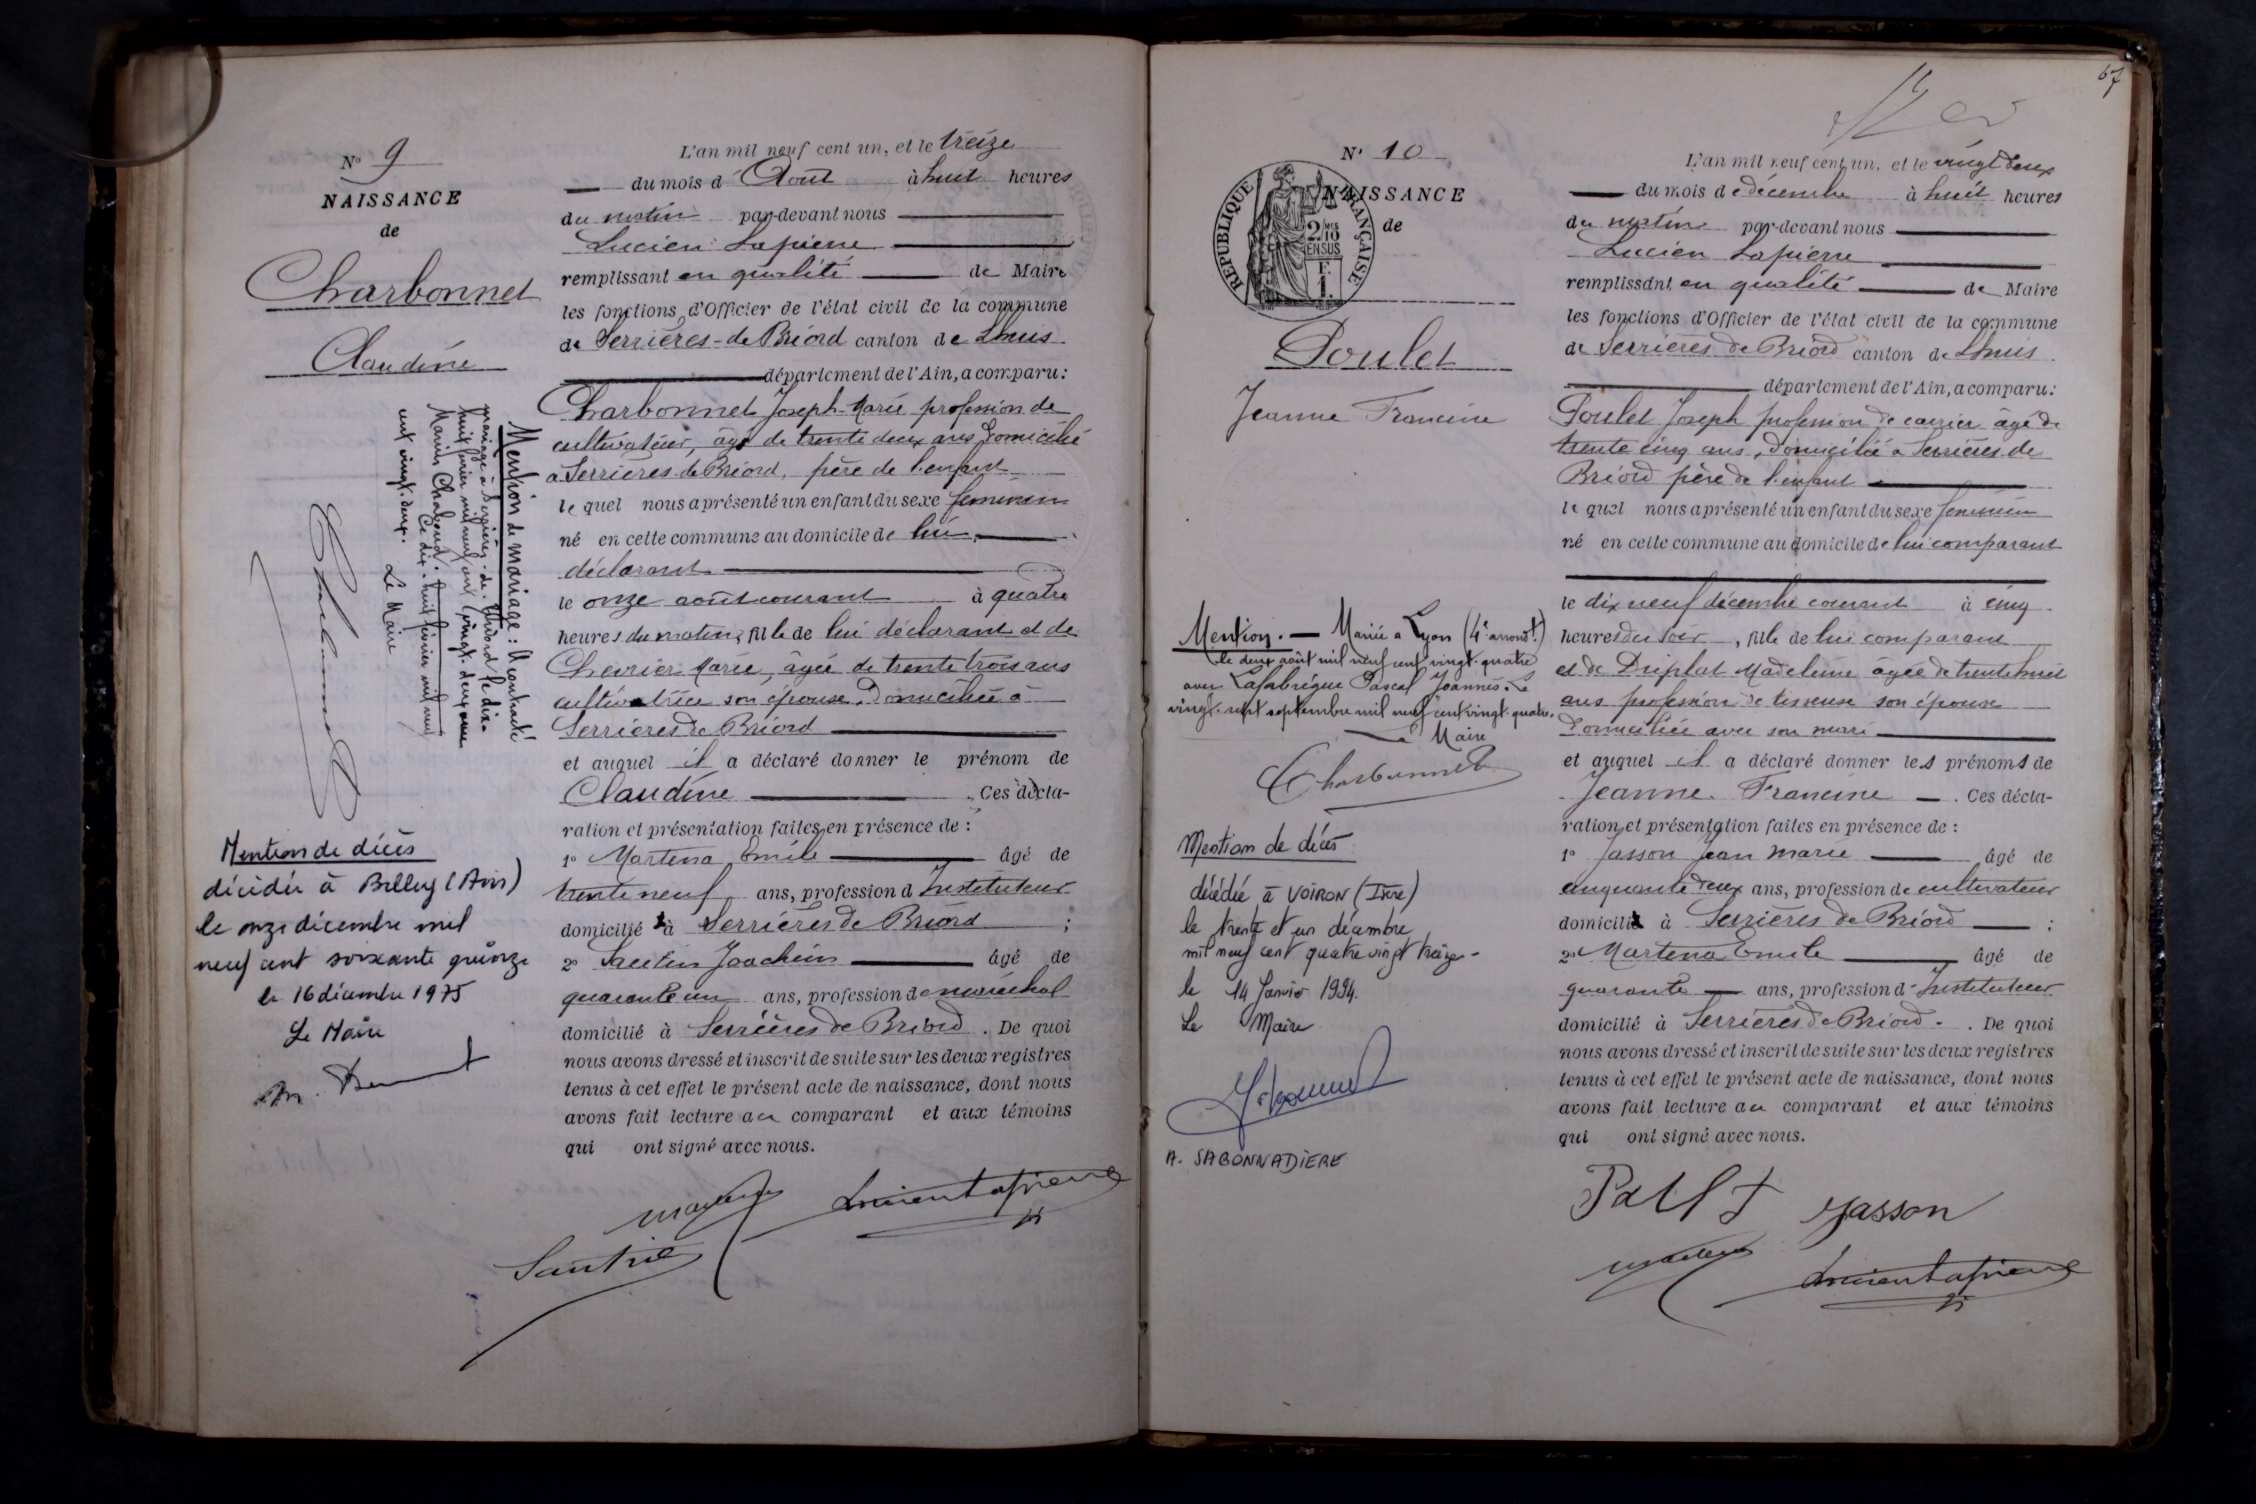 N° 9
NAISSANCE
de
Charbonnet
Claudine
Mention de mariage : A contracté
mariage à Serrières-de-Briord le dix-
huit février mil neuf cent vingt-deux avec
Marius Chaboud.
Ce dix-huit février mil neuf
cent vingt-deux.
Le Maire
Charbonnet
Mention de décès
décédée à Belley (Ain)
le onze décembre mil
neuf cent soixante quinze
le 16 décembre 1975
Le Maire
L'an mil neuf cent un, et le treize
du mois d'Août à huit heures
du matin par-devant nous
Lucien Lapierre
remplissant en qualité de Maire
les fonctions d'Officier de l'état civil de la commune
de Serrières-de Briord canton de Lhuis
département de l'Ain, a comparu :
Charbonnet Joseph-Marie profession de
cultivateur, âgé de trente deux ans domicilié
à Serrières-de Briord, père de l'enfant
le quel nous a présenté un enfant du sexe féminin
né en cette commune au domicile de lui
déclarant
le onze août courant à quatre
heures du matin, fille de lui déclarant et de
Chevrier Marie, âgée de trente trois ans
cultivatrice son épouse, domiciliée à
Serrières de Briord
et auquel il a déclaré donner le prénom de
Claudine . Ces décla-
ration et présentation faites en présence de :
1° Martena Emile âgé de
trente neuf ans, profession d'Instituteur
domicilié à Serrières de Briord ;
2° Joachim âgé de
quarante un ans, profession de maréchal
domicilié à Serrières de Briord . De quoi
nous avons dressé et inscrit de suite sur les deux registres
tenus à cet effet le présent acte de naissance, dont nous
avons fait lecture au comparant et aux témoins
qui ont signé avec nous.
Lucien Lapierre
57
N° 10
NAISSANCE
de
REPUBLIQUE FRANÇAISE
2/10
EN SUS
F.
1.
Poulet
Jeanne Francine
Mention. — Mariée à Lyon (4e arrondt.)
le deux août mil neuf cent vingt-quatre
avec Lafabrègue Pascal Joannès. Le
vingt-sept septembre mil neuf cent vingt-quatre.
Le Maire
Charbonnet
Mention de décès
décédée à VOIRON (Isère)
le trente et un décembre
mil neuf cent quatre vingt treize -
le 14 Janvier 1994.
Le Maire
A. SABONNADIERE
L'an mil neuf cent un, et le vingt deux
du mois de décembre à huit heures
du matin par-devant nous
Lucien Lapierre
remplissant en qualité de Maire
les fonctions d'Officier de l'état civil de la commune
de Serrières de Briord canton de Lhuis
département de l'Ain, a comparu :
Poulet Joseph profession de carrier âgé de
trente cinq ans, domicilié à Serrières de
Briord père de l'enfant
le quel nous a présenté un enfant du sexe féminin
né en cette commune au domicile de lui comparant
le dix neuf décembre courant à cinq
heures du soir, fille de lui comparant
et de Madeleine âgée de trente huit
ans profession de tisseuse son épouse
domiciliée avec son mari
et auquel il a déclaré donner les prénoms de
Jeanne Francine . Ces décla-
ration et présentation faites en présence de :
1° Jasson Jean Marie âgé de
cinquante deux ans, profession de cultivateur
domicilié à Serrières de Briord ;
2° Martena Emile âgé de
quarante ans, profession d'Instituteur
domicilié à Serrières de Briord . De quoi
nous avons dressé et inscrit de suite sur les deux registres
tenus à cet effet le présent acte de naissance, dont nous
avons fait lecture au comparant et aux témoins
qui ont signé avec nous.
Jasson
Lucien Lapierre